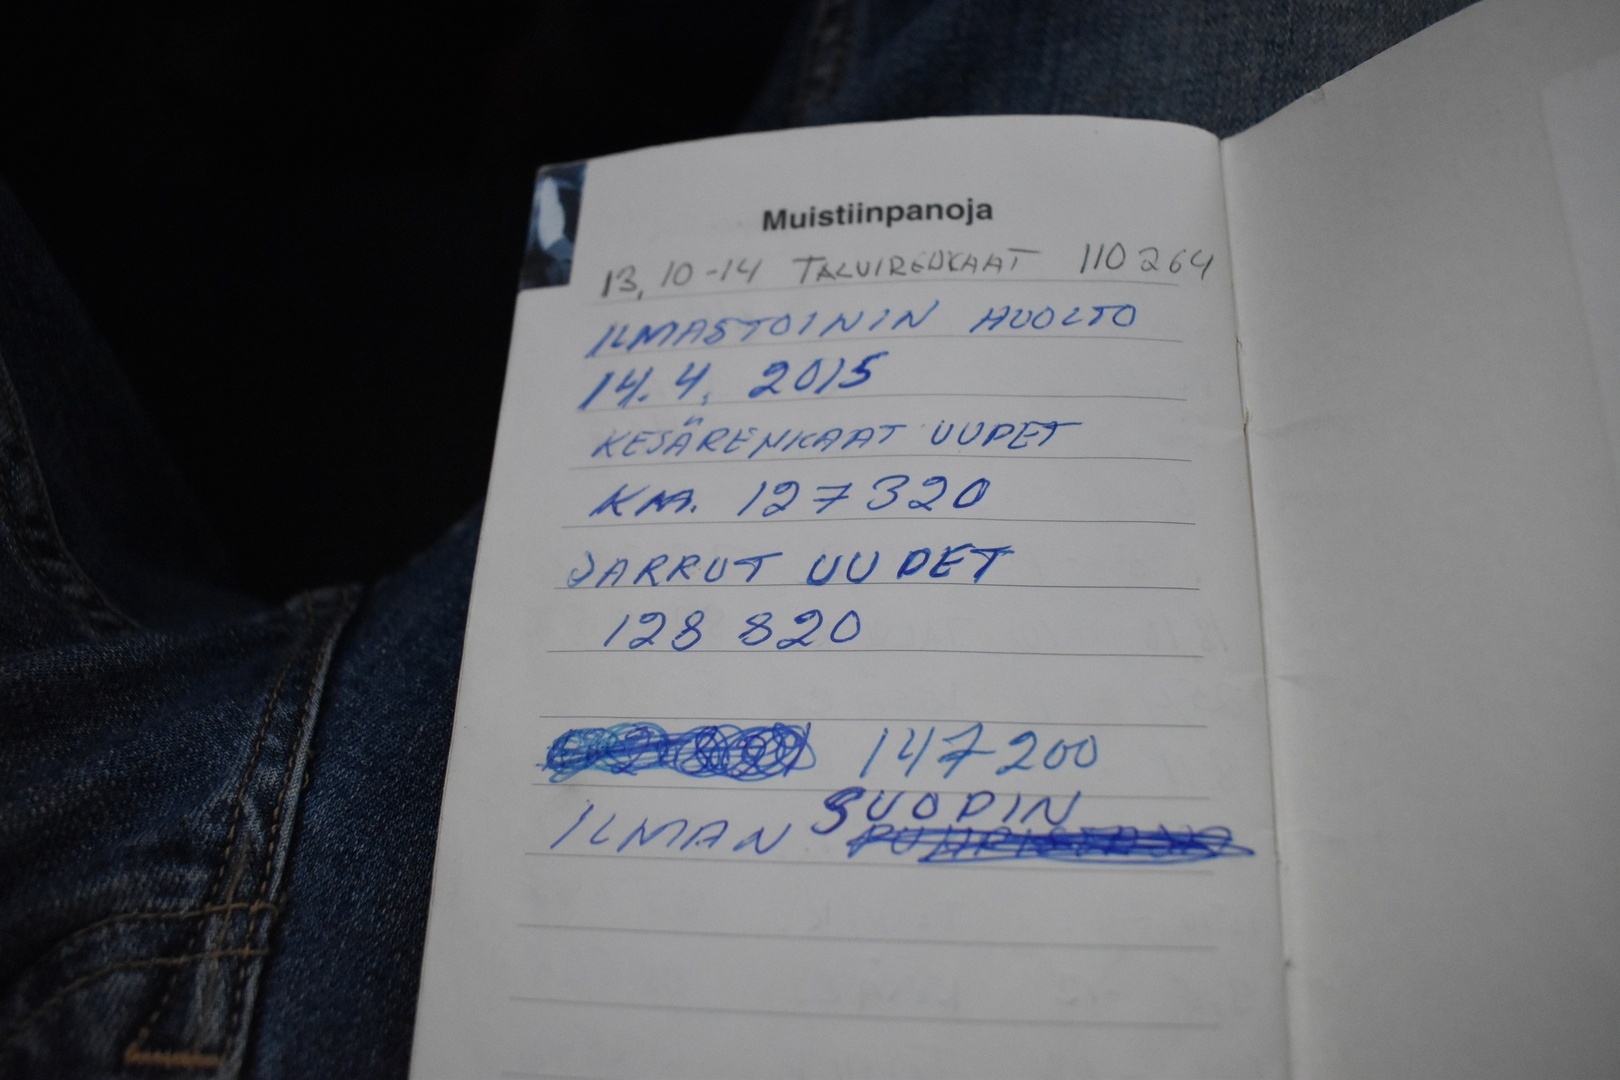 Muistiinpanoja
13, 10 -14 TALVIRENKAAT 110 264
ILMASTOININ HUOLTO
14. 4. 2015
KESÄRENKAAT UUDET
KM. 127320
JARRUT UUDET
128 820
147200
ILMAN SUODIN